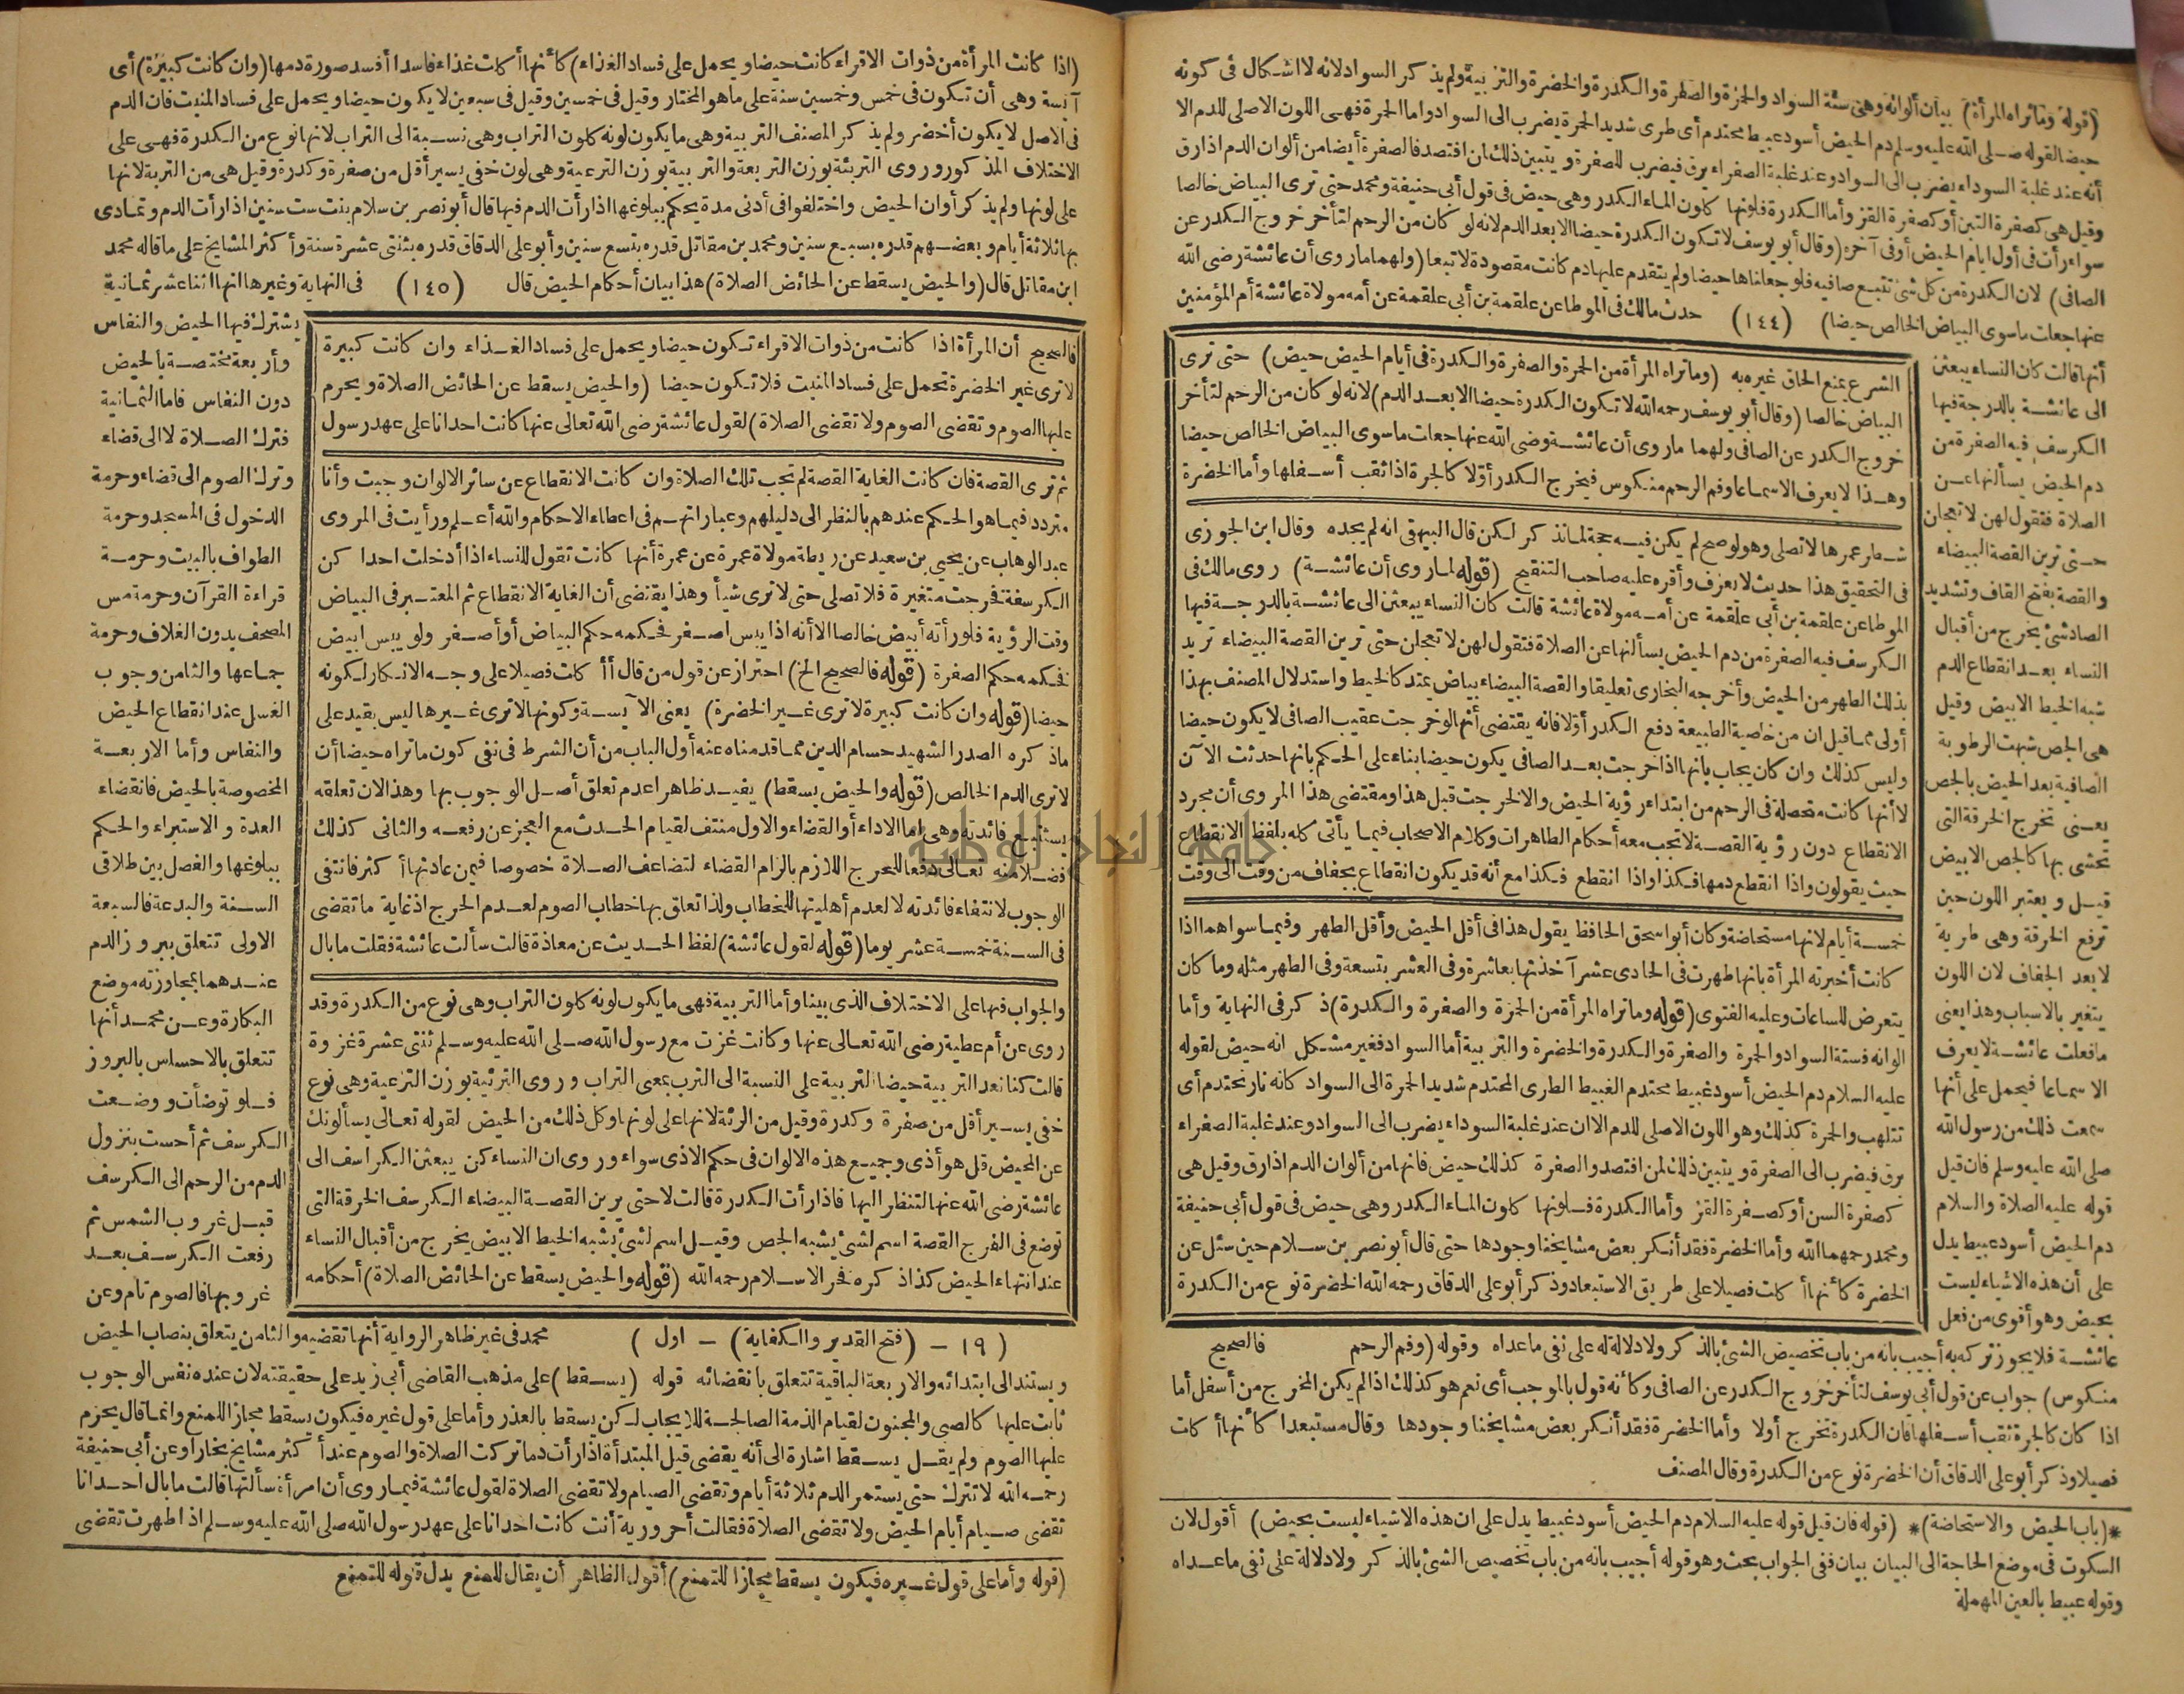 (قوله وما تراه المرأة) بيان ألوانه وهى ستة السواد والحمرة والصفرة والكدرة والخضرة والتربية ولم يذكر السواد لانه لا اشكال فى كونه
حيضا لقوله صلى الله عليه وسلم دم الحيض أسود عبيط محتدم أى طرى شديد الحمرة يضرب الى السواد واما الحمرة فهى اللون الاصلى للدم الا
أنه عند غلبة السوداء يضرب الى السواد وعند غلبة الصفراء يرق فيضرب للصفرة ويتبين ذلك لمن افتصد فالصفرة أيضا من ألوان الدم اذا رق
وقيل هى كصفرة التبن أو كصفرة القز وأما الكدرة فلونها كلون الماء الكدر وهى حيض فى قول أبى حنيفة ومحمد حتى ترى البياض خالصا
سواء رأت فى أول ايام الحيض أو فى آخره (وقال أبو يوسف لا تكون الكدرة حيضا الا بعد الدم لانه لو كان من الرحم لتأخر خروج الكدر عن
الصافى) لان الكدرة من كل شئ تتبع صافيه فلو جعلناها حيضا ولم يتقدم عليها دم كانت مقصودة لا تبعا (ولهما ما روى أن عائشة رضى الله
عنها جعلت ما سوى البياض الخالص حيضا) (١٤٤) حدث مالك فى الموطا عن علقمة بن أبى علقمة عن أمه مولاة عائشة أم المؤمنين
أنها قالت كان النساء يبعثن
الى عائشة بالدرجة فيها
الكرسف فيه الصفرة من
دم الحيض يسألنها عن
الصلاة فتقول لهن لا تعجلن
حتى ترين القصة البيضاء
والقصة بفتح القاف وتشديد
الصاد شئ يخرج من أقبال
النساء بعد انقطاع الدم
شبه الخيط الابيض وقيل
هى الجص شبهت الرطوبة
الصافية بعد الحيض بالجص
يعنى تخرج الخرقة التى
تحشى بها كالجص الابيض
قيل ويعتبر اللون حين
ترفع الخرقة وهى طرية
لا بعد الجفاف لان اللون
يتغير بالاسباب وهذا يعنى
ما فعلت عائشة لا يعرف
الا سماعا فيحمل على أنها
سمعت ذلك من رسول الله
صلى الله عليه وسلم فان قيل
قوله عليه الصلاة والسلام
دم الحيض أسود عبيط يدل
على أن هذه الاشياء ليست
بحيض وهو أقوى من فعل
عائشة فلا يجوز تركه به أجيب بانه من باب تخصيص الشئ بالذكر ولا دلالة له على نفى ما عداه وقوله (وفم الرحم
منكوس) جواب عن قول أبى يوسف لتأخر خروج الكدر عن الصافى وكأنه قول بالموجب أى نعم هو كذلك اذا لم يكن المخرج من أسفل أما
اذا كان كالجرة ثقب أسفلها فان الكدرة تخرج أولا وأما الخضرة فقد أنكر بعض مشايخنا وجودها وقال مستبعدا كأنها أكلت
فصيلا وذكر أبو على الدقاق أن الخضرة نوع من الكدرة وقال المصنف
فالصحيح
الشرع بمنع الحاق غيره به (وما تراه المرأة من الحمرة والصفرة والكدرة فى أيام الحيض حيض) حتى ترى
البياض خالصا (وقال أبو يوسف رحمه الله لا تكون الكدرة حيضا الا بعد الدم) لانه لو كان من الرحم لتأخر
خروج الكدر عن الصافى ولهما ما روى أن عائشة رضى الله عنها جعلت ما سوى البياض الخالص حيضا
وهذا لا يعرف الا سماعا وفم الرحم منكوس فيخرج الكدر أولا كالجرة اذا ثقب أسفلها وأما الخضرة
شطر عمرها لا تصلى وهو لو صح لم يكن فيه حجة لما نذكر لكن قال البيهقى انه لم يجده وقال ابن الجوزى
فى التحقيق هذا حديث لا يعرف وأقره عليه صاحب التنقيح (قوله لما روى أن عائشة) روى مالك فى
الموطا عن علقمة بن أبى علقمة عن أمه مولاة عائشة قالت كان النساء يبعثن الى عائشة بالدرجة فيها
الكرسف فيه الصفرة من دم الحيض يسألنها عن الصلاة فتقول لهن لا تعجلن حتى ترين القصة البيضاء تريد
بذلك الطهر من الحيض وأخرجه البخارى تعليقا والقصة البيضاء بياض يمتد كالخيط واستدلال المصنف بهذا
أولى مما قيل ان من خاصية الطبيعة دفع الكدر أولا فانه يقتضى أنها لو خرجت عقيب الصافى لا يكون حيضا
وليس كذلك وان كان يجاب بأنها اذا خرجت بعد الصافى يكون حيضا بناء على الحكم بانها حدثت الآن
لا أنها كانت متحصلة فى الرحم من ابتداء رؤية الحيض والا لخرجت قبل هذا ومقتضى هذا المروى أن مجرد
الانقطاع دون رؤية القصة لا تجب معه أحكام الطاهرات وكلام الاصحاب فيما يأتى كله بلفظ الانقطاع
حيث يقولون واذا انقطع دمها فكذا واذا انقطع فكذا مع أنه قد يكون انقطاع بجفاف من وقت الى وقت
خمسة أيام لانها مستحاضة وكان أبو اسحق الحافظ يقول هذا فى أقل الحيض وأقل الطهر وفيما سواهما اذا
كانت أخبرته المرأة بانها طهرت فى الحادى عشر آخذتها بعاشرة وفى العشر بتسعة وفى الطهر مثله وما كان
يتعرض للساعات وعليه الفتوى (قوله وما تراه المرأة من الحمرة والصفرة والكدرة) ذكر فى النهاية وأما
الوانه فستة السواد والحمرة والصفرة والكدرة والخضرة والتربية أما السواد فغير مشكل انه حيض لقوله
عليه السلام دم الحيض أسود غبيط محتدم الغبيط الطرى المحتدم شديد الحمرة الى السواد كانه نار تحتدم أى
تتلهب والحمرة كذلك وهو اللون الاصلى للدم الا ان عند غلبة السوداء يضرب الى السواد وعند غلبة الصفراء
يرق فيضرب الى الصفرة ويتبين ذلك لمن افتصد والصفرة كذلك حيض فانها من ألوان الدم اذا رق وقيل هى
كصفرة السن أو كصفرة القز وأما الكدرة فلونها كلون الماء الكدر وهى حيض فى قول أبى حنيفة
ومحمد رحمهما الله وأما الخضرة فقد أنكر بعض مشايخنا وجودها حتى قال أبو نصر بن سلام حين سئل عن
الخضرة كأنها أكلت فصيلا على طريق الاستبعاد وذكر أبو على الدقاق رحمه الله الخضرة نوع من الكدرة
*(باب الحيض والاستحاضة)* (قوله فان قيل قوله عليه السلام دم الحيض أسود غبيط يدل على ان هذه الاشياء ليست بحيض) أقول لان
السكوت فى موضع الحاجة الى البيان بيان ففى الجواب بحث وهو قوله أجيب بانه من باب تخصيص الشئ بالذكر ولا دلالة على نفى ما عداه
وقوله عبيط بالعين المهملة
(اذا كانت المرأة من ذوات الاقراء كانت حيضا ويحمل على فساد الغذاء) كأنها أكلت غذاء فاسدا أفسد صورة دمها (وان كانت كبيرة) أى
آيسة وهى أن تكون فى خمس وخمسين سنة على ما هو المختار وقيل فى خمسين وقيل فى سبعين لا يكون حيضا ويحمل على فساد المنبت فان الدم
فى الاصل لا يكون أخضر ولم يذكر المصنف التربية وهى ما يكون لونه كلون التراب وهى نسبة الى التراب لانها نوع من الكدرة فهى على
الاختلاف المذكور وروى التربئة بوزن التربعة والتربية بوزن الترعية وهى لون خفى يسير أقل من صفرة وكدرة وقيل هى من التربة لانها
على لونها ولم يذكر أوان الحيض واختلفوا فى أدنى مدة يحكم ببلوغها اذا رأت الدم فيها قال أبو نصر بن سلام بنت ست سنين اذا رأت الدم وتمادى
بها ثلاثة أيام وبعضهم قدره بسبع سنين ومحمد بن مقاتل قدره بتسع سنين وأبو على الدقاق قدره بثنتى عشرة سنة وأكثر المشايخ على ما قاله محمد
ابن مقاتل قال (والحيض يسقط عن الحائض الصلاة) هذا بيان أحكام الحيض قال (١٤٥) فى النهاية وغيرها انها اثنا عشر ثمانية
يشترك فيها الحيض والنفاس
وأربعة مختصة بالحيض
دون النفاس فاما الثمانية
فترك الصلاة لا الى قضاء
وترك الصوم الى قضاء وحرمة
الدخول فى المسجد وحرمة
الطواف بالبيت وحرمة
قراءة القرآن وحرمة مس
المصحف بدون الغلاف وحرمة
جماعها والثامن وجوب
الغسل عند انقطاع الحيض
والنفاس وأما الاربعة
المخصوصة بالحيض فانقضاء
العدة والاستبراء والحكم
ببلوغها والفصل بين طلاقى
السنة والبدعة فالسبعة
الاولى تتعلق ببروز الدم
عندهما بمجاوزته موضع
البكارة وعن محمد أنها
تتعلق بالاحساس بالبروز
فلو توضأت ووضعت
الكرسف ثم أحست بنزول
الدم من الرحم الى الكرسف
قبل غروب الشمس ثم
رفعت الكرسف بعد
غروبها فالصوم تام وعن
محمد فى غير ظاهر الرواية أنها تقضيه والثامن يتعلق بنصاب الحيض
فالصحيح أن المرأة اذا كانت من ذوات الاقراء تكون حيضا ويحمل على فساد الغذاء وان كانت كبيرة
لا ترى غير الخضرة تحمل على فساد المنبت فلا تكون حيضا (والحيض يسقط عن الحائض الصلاة ويحرم
عليها الصوم وتقضى الصوم ولا تقضى الصلاة) لقول عائشة رضى الله تعالى عنها كانت احدانا على عهد رسول
ثم ترى القصة فان كانت الغاية القصة لم تجب تلك الصلاة وان كانت الانقطاع عن سائر الالوان وجبت وأنا
متردد فيما هو الحكم عندهم بالنظر الى دليلهم وعباراتهم فى اعطاء الاحكام والله أعلم ورأيت فى المروى
عبد الوهاب عن يحيى بن سعيد عن ريطة مولاة عمرة عن عمرة أنها كانت تقول للنساء اذا أدخلت احدا كن
الكرسفة فخرجت متغيرة فلا تصلى حتى لا ترى شيأ وهذا يقتضى أن الغاية الانقطاع ثم المعتبر فى البياض
وقت الرؤية فلو رأته أبيض خالصا الا أنه اذا يبس اصفر فحكمه حكم البياض أو أصفر ولو يبس ابيض
فحكمه حكم الصفرة (قوله فالصحيح الخ) احتراز عن قول من قال أأكلت فصيلا على وجه الانكار لكونه
حيضا (قوله وان كانت كبيرة لا ترى غير الخضرة) يعنى الآيسة وكونها لا ترى غيرها ليس بقيد على
ما ذكره الصدر الشهيد حسام الدين مما قدمناه عنه أول الباب من أن الشرط فى نفى كون ما تراه حيضا أن
لا ترى الدم الخالص (قوله والحيض يسقط) يفيد ظاهرا عدم تعلق أصل الوجوب بها وهذا لان تعلقه
يستتبع فائدته وهى اما الاداء أو القضاء والاول منتف لقيام الحدث مع العجز عن رفعه والثانى كذلك
فضلا منه تعالى دفعا للحرج اللازم بالزام القضاء لتضاعف الصلاة خصوصا فيمن عادتها أكثر فانتفى
الوجوب لانتفاء فائدته لا لعدم أهليتها للخطاب ولذا تعلق بها خطاب الصوم لعدم الحرج اذ غاية ما تقضى
فى السنة خمسة عشر يوما (قوله لقول عائشة) لفظ الحديث عن معاذة قالت سألت عائشة فقلت ما بال
والجواب فيها على الاختلاف الذى بينا وأما التربية فهى ما يكون لونه كلون التراب وهى نوع من الكدرة وقد
روى عن أم عطية رضى الله تعالى عنها وكانت غزت مع رسول الله صلى الله عليه وسلم ثنتى عشرة غزوة
قالت كنا نعد التربية حيضا التربية على النسبة الى الترب بمعنى التراب وروى التربئية بوزن الترعية وهى نوع
خفى يسير أقل من صفرة وكدرة وقيل من الرئة لانها على لونها وكل ذلك من الحيض لقوله تعالى يسألونك
عن المحيض قل هو أذى وجميع هذه الالوان فى حكم الاذى سواء وروى ان النساء كن يبعثن الكراسف الى
عائشة رضى الله عنها لتنظر اليها فاذا رأت الكدرة قالت لا حتى يرين القصة البيضاء الكرسف الخرقة التى
توضع فى الفرج القصة اسم لشئ يشبه الجص وقيل اسم لشئ يشبه الخيط الابيض يخرج من أقبال النساء
عند انتهاء الحيض كذا ذكره فخر الاسلام رحمه الله (قوله والحيض يسقط عن الحائض الصلاة) أحكامه
( ١٩ - (فتح القدير والكفاية) - اول )
ويستند الى ابتدائه والاربعة الباقية تتعلق بانقضائه قوله (يسقط) على مذهب القاضى أبى زيد على حقيقته لان عنده نفس الوجوب
ثابت عليها كالصبى والمجنون لقيام الذمة الصالحة للايجاب لكن يسقط بالعذر وأما على قول غيره فيكون يسقط مجازا للمنع وانما قال يحرم
عليها الصوم ولم يقل يسقط اشارة الى أنه يقضى قيل المبتدأة اذا رأت دما تركت الصلاة والصوم عند أكثر مشايخ بخارا وعن أبى حنيفة
رحمه الله لا تترك حتى يستمر الدم ثلاثة أيام وتقضى الصيام ولا تقضى الصلاة لقول عائشة فيما روى أن امرأة سألتها قالت ما بال احدانا
تقضى صيام أيام الحيض ولا تقضى الصلاة فقالت أحرورية أنت كانت احدانا على عهد رسول الله صلى الله عليه وسلم اذا طهرت تقضى
(قوله وأما على قول غيره فيكون يسقط مجازا للتمنع) أقول الظاهر أن يقال للمنع بدل قوله للتمنع
جامعة النجاح الوطنية